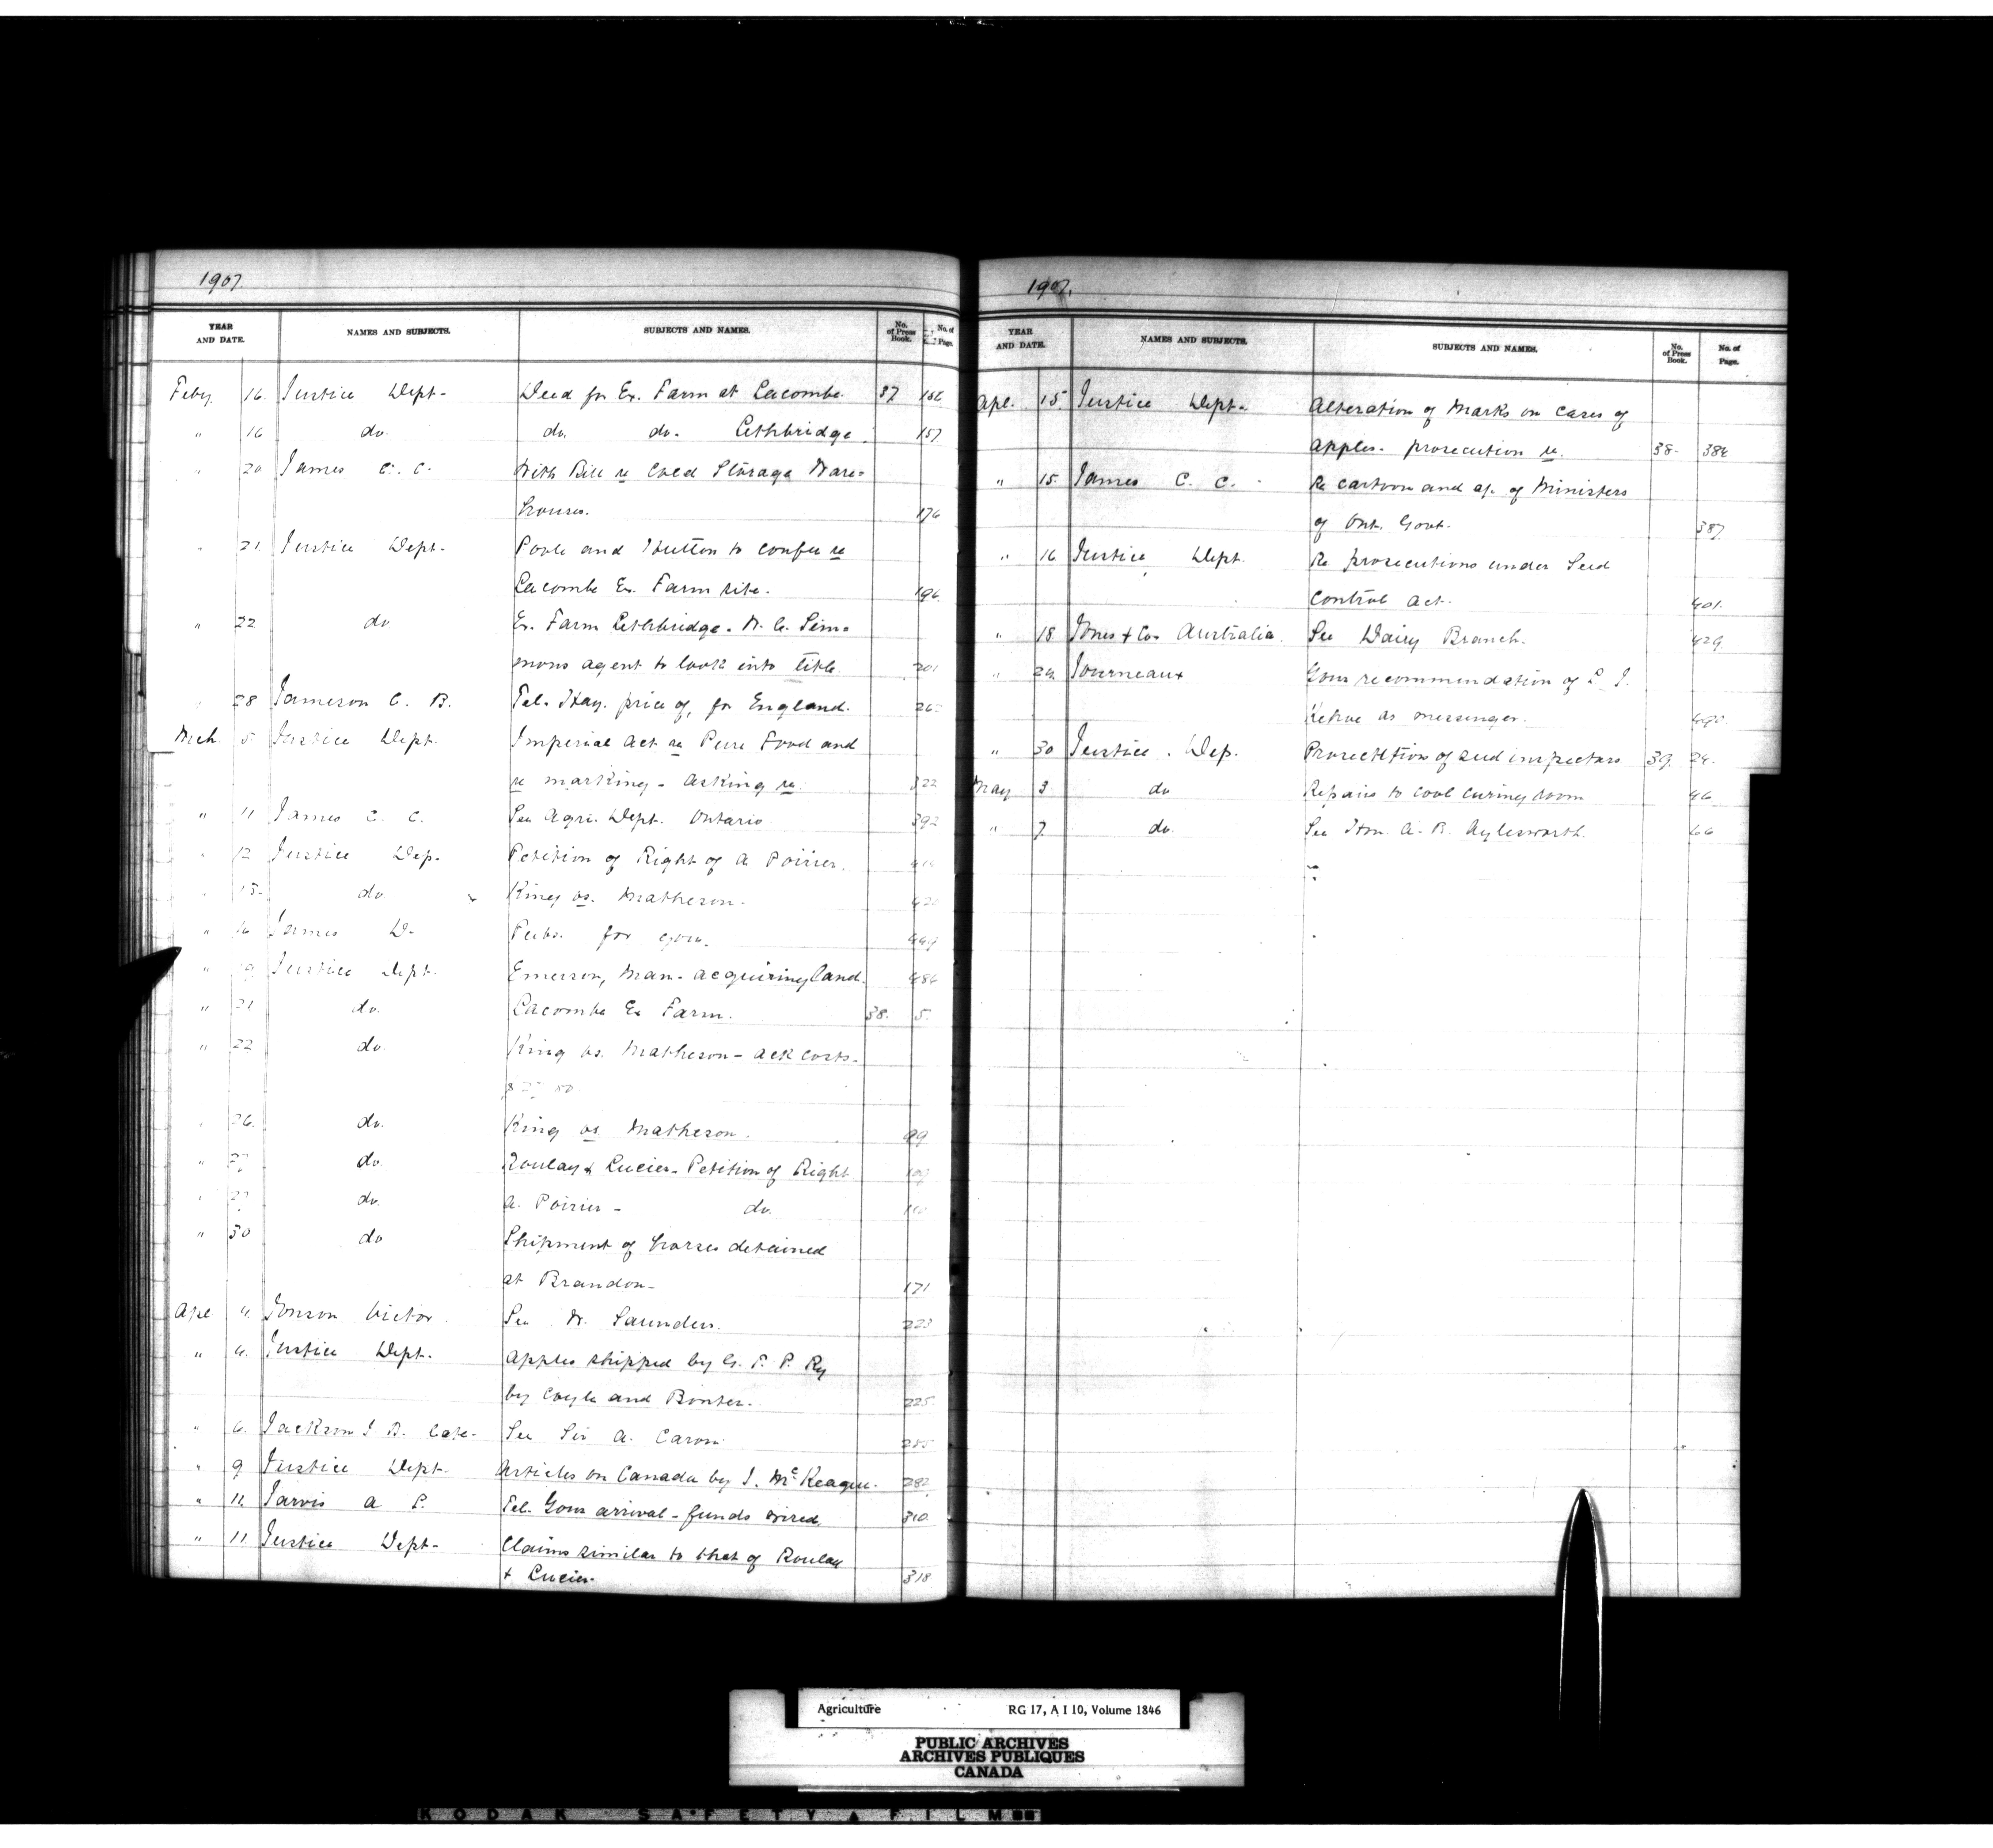 1907
YEAR AND DATE. NAMES AND SUBJECTS. SUBJECTS AND NAMES. No. of Press Book. No. of Page.
Feby. 16. Justice Dept. Deed for Ex. Farm at Lacombe. 37 156
" 16 do. do. do. Lethbridge. 157
" 20 James C. C. With Bill re Cold Storage Ware-
houses. 176
" 21. Justice Dept. Poole and Hutton to confer re
Lacombe Ex. Farm site. 196
" 22 do Ex. Farm Lethbridge. W. C. Sim-
mons agent to look into title. 201
" 28 Jameson C. B. Tel. Hay. price of, for England.
Mch. 5. Justice Dept. Imperial Act re Pure Food and
re marking - asking re. 322
" 11 James C. C. See Agri. Dept. Ontario 392
" 12 Justice Dep. Petition of Right of A Poirier.
" 15. do King vs. Matheson.
" 16 James W. Pubs. for gov. 449
" 19 Justice Dept. Emerson, Man. acquiring land. 486
" 21 do. Lacombe Ex Farm. 38. 5.
" 22 do. King vs. Matheson - ack costs.
" 26. do. King vs Matheson. 99
" 27 do. Roulay & Lucier - Petition of Right 109
" 27 do. A. Poirier - do. 110
" 30 do Shipment of horses detained
at Brandon - 171
Apl 4. Jonson Victor See W. Saunders. 223
" 4. Justice Dept. Apples shipped by G. T. P. Ry
by Coyle and Bonter. 225
" 6. Jackson J. B. Cate- See Sir A. Caron 255
" 9 Justice Dept. Articles on Canada by J. McKeague. 282
" 11. Jarvis A P. Tel. Your arrival - funds wired. 310
" 11. Justice Dept. Claims similar to that of Roulay
+ Lucier. 318
1907.
YEAR AND DATE. NAMES AND SUBJECTS. SUBJECTS AND NAMES. No. of Press Book. No. of Page.
Apl. 15 Justice Dept. Alteration of Marks on cases of
apples - prosecution re. 38. 384
" 15. James C. C. Re cartoon and of Ministers
of Ont. Govt. 387
" 16 Justice Dept. Re prosecutions under Seed
Control Act. 401.
" 18 Jones & Co. Australia. See Dairy Branch. 429
" 24 Journeaux Your recommendation of
as messenger.
" 30 Justice. Dep. Prosecution of seed inspectors 39. 24.
May 3 do Repairs to cool curing room 46
" 7 do. See Hon. A. B. Aylesworth. 66
Agriculture RG 17, A I 10, Volume 1846
PUBLIC ARCHIVES
ARCHIVES PUBLIQUES
CANADA
KODAK SAFETY FILM